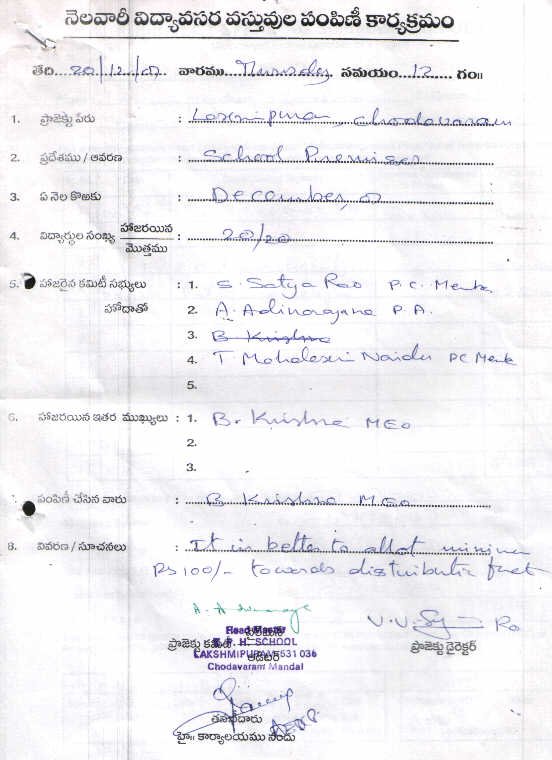 నెలవారీ విద్యావసర వస్తువుల పంపిణీ కార్యక్రమం
తేది....20/12/07 వారము Thursday సమయం...12.... గం॥
1. ప్రాజెక్టు పేరు : Laxmipuram, Chodavaram
2. ప్రదేశము / ఆవరణ : School Premises
3. ఏ నెల కొఱకు : December, 07
4. విద్యార్థుల సంఖ్య హాజరయిన/మొత్తము : 20/20
5. హాజరైన కమిటీ సభ్యులు : 1. S. Satya Rao P.C. Memb
హోదాతో 2. A. Adinarayana P.A.
3. B Krishna
4. T Naidu PC Memb
5.
6. హాజరయిన ఇతర ముఖ్యులు : 1. B. Krishna MEO
2.
3.
పంపిణీ చేసిన వారు : B Krishna MEO
8. వివరణ / సూచనలు : It is better to allot
Rs 100/- towards
Head Master
ప్రాజెక్టు కమిటీ H. SCHOOL ప్రాజెక్టు డైరెక్టర్
LAKSHMIPURAM 531 036
Chodavaram Mandal
హై॥ కార్యాలయము నందు